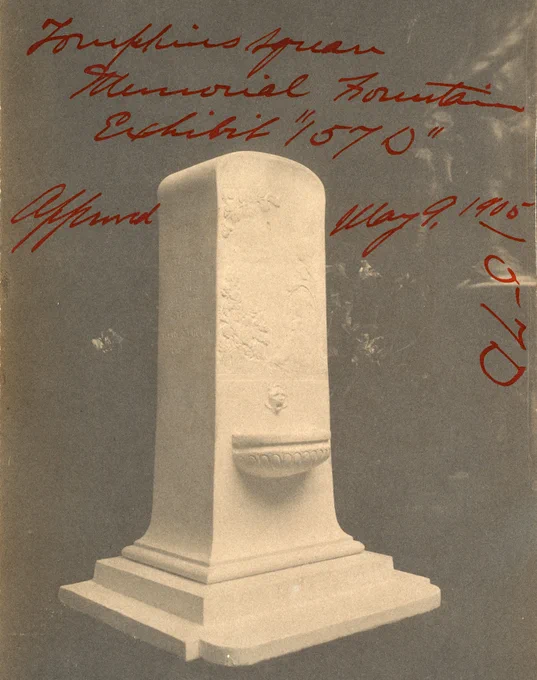 Tompkins Square
Memorial Fountain
Exhibit "157 D"
Approved May 9, 1905
157D